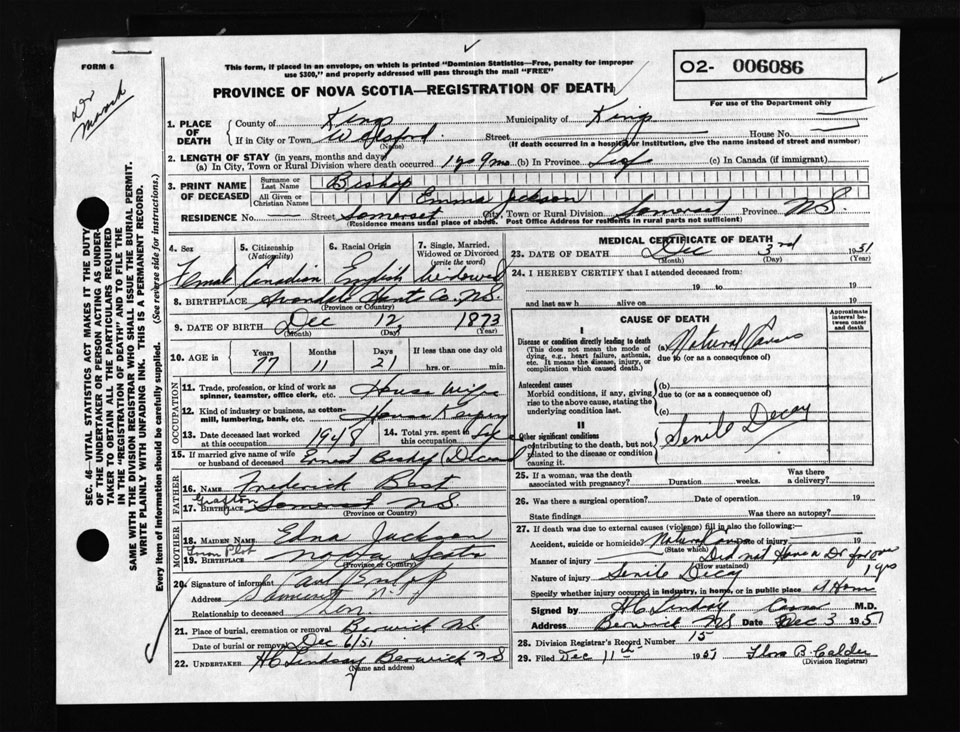 FORM 6
Dr
March
This form, if placed in an envelope, on which is printed "Dominion Statistics—Free, penalty for improper
use $300," and properly addressed will pass through the mail "FREE"
PROVINCE OF NOVA SCOTIA—REGISTRATION OF DEATH
O2- 006086
For use of the Department only
1. PLACE OF DEATH
County of Kings Municipality of Kings
If in City or Town Street House No.
(Name) (If death occurred in a hospital or institution, give the name instead of street and number)
2. LENGTH OF STAY (in years, months and days)
(a) In City, Town or Rural Division where death occurred 1 yr 9 mo (b) In Province Life (c) In Canada (if immigrant)
3. PRINT NAME OF DECEASED
Surname or Last Name Bishop
All Given or Christian Names Emma Jackson
RESIDENCE No. Street Somerset City, Town or Rural Division Somerset Province N.S.
(Residence means usual place of abode. Post Office Address for residents in rural parts not sufficient)
4. Sex 5. Citizenship (Nationality) 6. Racial Origin 7. Single, Married, Widowed or Divorced (write the word)
Female Canadian English Widowed
8. BIRTHPLACE Avondale Hants Co. N.S.
(Province or Country)
9. DATE OF BIRTH Dec 12 1873
(Month) (Day) (Year)
10. AGE in Years Months Days If less than one day old
77 11 21 hrs. or min.
OCCUPATION
11. Trade, profession, or kind of work as spinner, teamster, office clerk, etc. House Wife
12. Kind of industry or business, as cotton-mill, lumbering, bank, etc. House Keeping
13. Date deceased last worked at this occupation 1948 14. Total yrs. spent in this occupation
15. If married give name of wife or husband of deceased Ernest Bishop (Deceased)
FATHER
16. NAME Frederick Best
Grafton
17. BIRTHPLACE Somerset N.S.
(Province or Country)
MOTHER
18. MAIDEN NAME Edna Jackson
19. BIRTHPLACE Nova Scotia
(Province or Country)
20. Signature of informant Bishop
Address Somerset N.S.
Relationship to deceased Son.
21. Place of burial, cremation or removal Berwick N.S.
Date of burial or removal Dec 6/51
22. UNDERTAKER H C Lindsay Berwick N S
(Name and address)
MEDICAL CERTIFICATE OF DEATH
23. DATE OF DEATH Dec 3rd 1951
(Month) (Day) (Year)
24. I HEREBY CERTIFY that I attended deceased from
19 to 19
and last saw h alive on 19
CAUSE OF DEATH
Approximate interval between onset and death
I
Disease or condition directly leading to death
(This does not mean the mode of dying, e.g., heart failure, asthenia, etc. It means the disease, injury, or complication which caused death.)
(a) Natural Causes
due to (or as a consequence of)
Antecedent causes
Morbid conditions, if any, giving rise to the above cause, stating the underlying condition last.
(b)
due to (or as a consequence of)
(c)
II
Other significant conditions
contributing to the death, but not related to the disease or condition causing it.
Senile Decay
25. If a woman, was the death associated with pregnancy? Duration weeks. Was there a delivery?
26. Was there a surgical operation? Date of operation 19
State findings Was there an autopsy?
27. If death was due to external causes (violence) fill in also the following:—
Accident, suicide or homicide? Natural Causes Date of injury 19
(State which)
Manner of injury Did not Have a Dr for Over 1 yr
(How sustained)
Nature of injury Senile Decay
Specify whether injury occurred in industry, in home, or in public place at Home
Signed by H C Lindsay M.D.
Address Berwick NS Date Dec 3 1951
28. Division Registrar's Record Number 15
29. Filed Dec 11th 1951 Flora B. Calder
(Division Registrar)
SEC. 46—VITAL STATISTICS ACT MAKES IT THE DUTY
OF THE UNDERTAKER OR PERSON ACTING AS UNDER-
TAKER TO OBTAIN ALL THE PARTICULARS REQUIRED
IN THE "REGISTRATION OF DEATH" AND TO FILE THE
SAME WITH THE DIVISION REGISTRAR WHO SHALL ISSUE THE BURIAL PERMIT.
WRITE PLAINLY WITH UNFADING INK. THIS IS A PERMANENT RECORD.
Every item of Information should be carefully supplied. (See reverse side for instructions.)